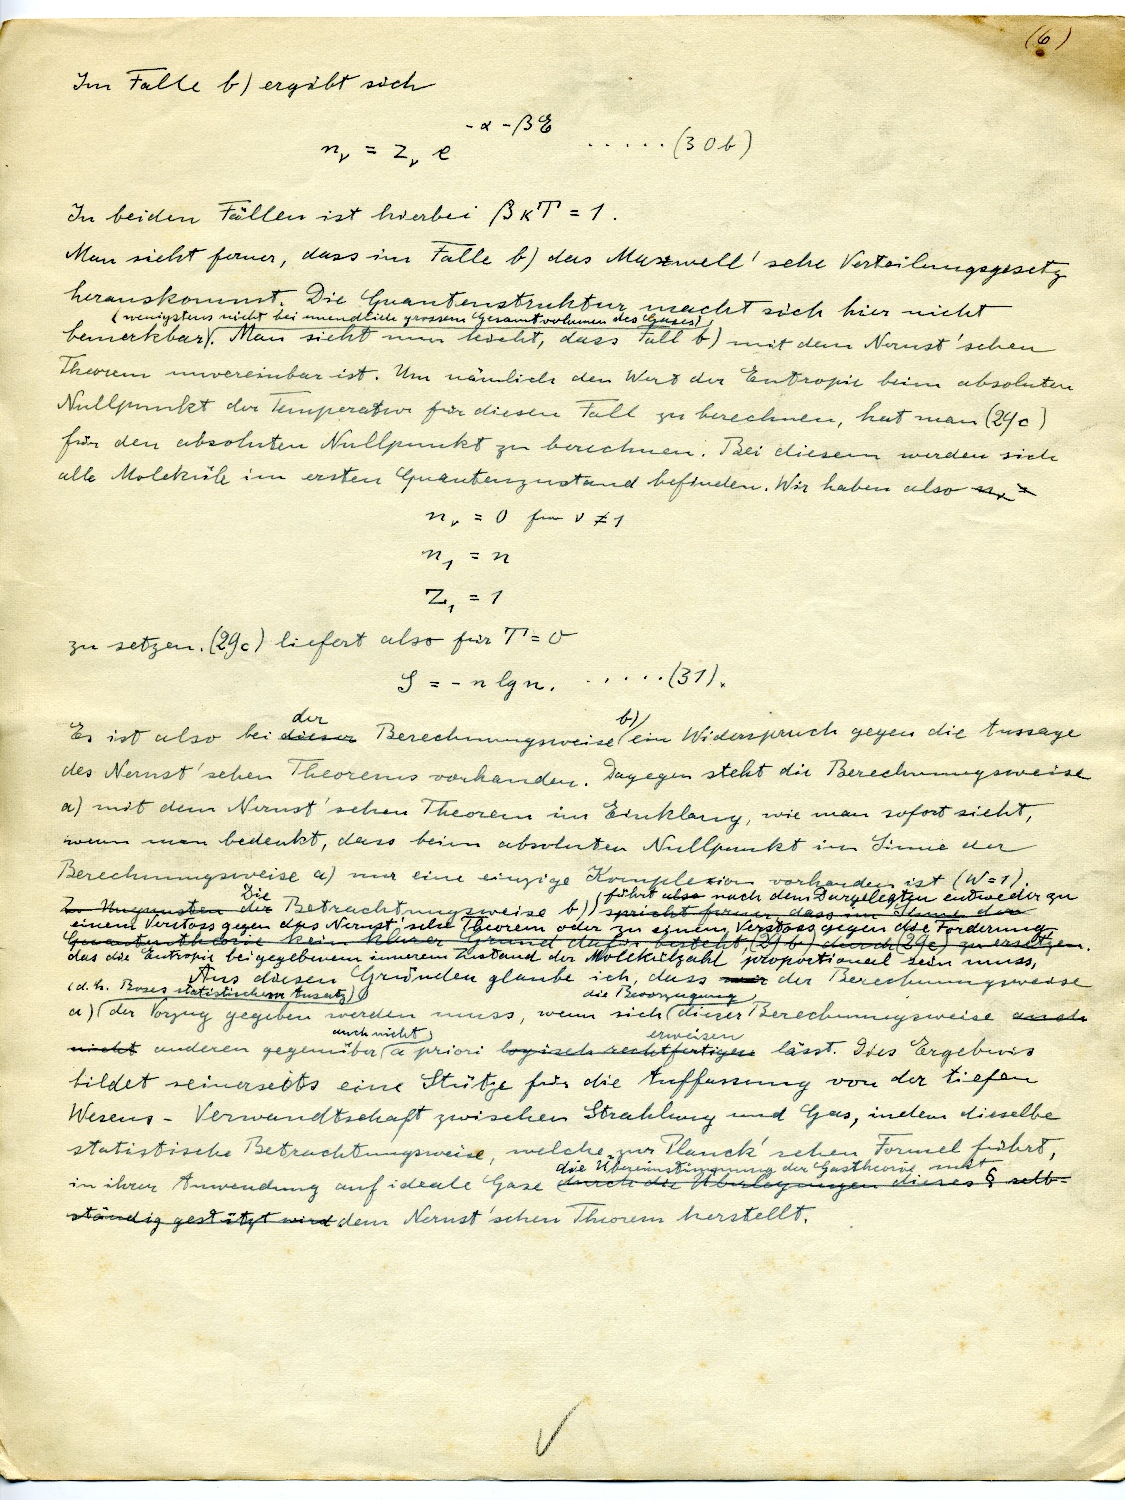 (6)
Im Falle b) ergibt sich
n_ν = z_ν e^{-α-βE} ..... (30b)
In beiden Fällen ist hierbei βκT = 1.
Man sieht ferner, dass im Falle b) das Maxwell'sche Verteilungsgesetz
herauskommt. Die Quantenstruktur macht sich hier nicht
(wenigstens nicht bei unendlich grossem Gesamtvolumen des Gases)
bemerkbar. Man sieht nun leicht, dass Fall b) mit dem Nernst'schen
Theorem unvereinbar ist. Um nämlich den Wert der Entropie beim absoluten
Nullpunkt der Temperatur für diesen Fall zu berechnen, hat man (29c)
für den absoluten Nullpunkt zu berechnen. Bei diesem werden sich
alle Moleküle im ersten Quantenzustand befinden. Wir haben also n_ν =
n_ν = 0 für ν ≠ 1
n_1 = n
z_1 = 1
zu setzen. (29c) liefert also für T = 0
S = - n lg n. ..... (31).
der b)
Es ist also bei dieser Berechnungsweise ein Widerspruch gegen die Aussage
des Nernst'schen Theorems vorhanden. Dagegen steht die Berechnungsweise
a) mit dem Nernst'schen Theorem im Einklang, wie man sofort sieht,
wenn man bedenkt, dass beim absoluten Nullpunkt im Sinne der
Berechnungsweise a) nur eine einzige Komplexion vorhanden ist (W=1).
Die führt also nach dem Dargelegten entweder zu
Zu Ungunsten der Betrachtungsweise b) spricht ferner, dass im Sinne der
einem Verstoss gegen das Nernst'sche Theorem oder zu einem Verstoss gegen die Forderung,
Quantentheorie kein klarer Grund dafür besteht, (29b) durch (29c) zu ersetzen.
dass die Entropie bei gegebenem innerem Zustand der Molekülzahl proportional sein muss,
Aus diesen Gründen glaube ich, dass nur der Berechnungsweise
(d.h. Boses statistischem Ansatz) die Bevorzugung
a) der Vorzug gegeben werden muss, wenn sich dieser Berechnungsweise auch
auch nicht erweisen
nicht anderen gegenüber a priori logisch rechtfertigen lässt. Dies Ergebnis
bildet seinerseits eine Stütze für die Auffassung von der tiefen
Wesens-Verwandtschaft zwischen Strahlung und Gas, indem dieselbe
statistische Betrachtungsweise, welche zur Planck'schen Formel führt,
die Übereinstimmung der Gastheorie mit
in ihrer Anwendung auf ideale Gase durch die Überlegungen dieses § selb-
ständig gestützt wird dem Nernst'schen Theorem herstellt.